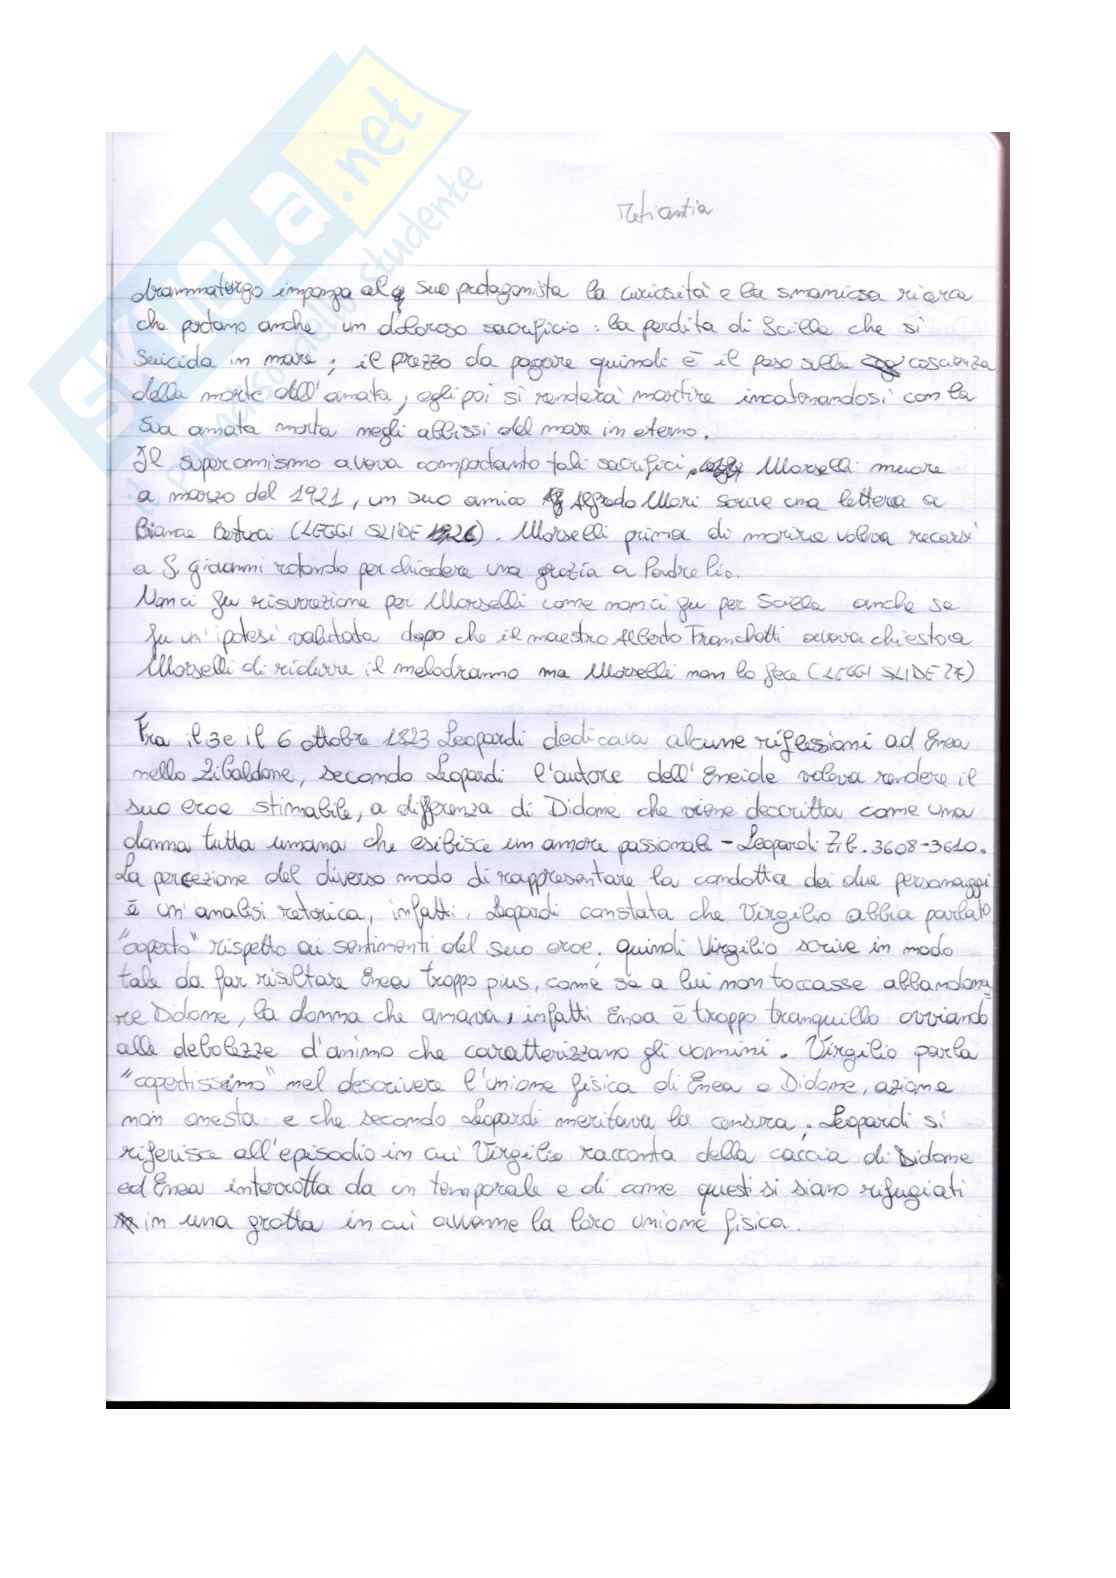 SKUOLA.net
il paradiso dello studente
drammaturgo imponga al suo protagonista la curiosità e la smaniosa ricerca
che portano anche un doloroso sacrificio: la perdita di Scilla che si
suicida in mare; il prezzo da pagare quindi è il peso sulla coscienza
della morte dell'amata, egli poi si renderà martire incatenandosi con la
sua amata morta negli abbissi del mare in eterno.
Il superomismo aveva comportanto tali sacrifici, Morselli muore
a marzo del 1921, un suo amico Alfredo Mori scrive una lettera a
Bianca (LEGGI SLIDE 26). Morselli prima di morire voleva recarsi
a S. Giovanni rotondo per chiedere una grazia a Padre Pio.
Non ci fu risurrezione per Morselli come non ci fu per Scilla anche se
fu un'ipotesi valutata dopo che il maestro Alberto Franchetti aveva chiesto a
Morselli di ridurre il melodranno ma Morselli non lo fece (LEGGI SLIDE 27)
Fra il 3 e il 6 ottobre 1823 Leopardi dedicava alcune riflessioni ad Enea
nello Zibaldone, secondo Leopardi l'autore dell'Eneide voleva rendere il
suo eroe stimabile, a differenza di Didone che viene descritta come una
donna tutta umana che esibisce un amore passionale - Leopardi Zib. 3608-3610.
La percezione del diverso modo di rappresentare la condotta dei due personaggi
è un'analisi retorica, infatti, Leopardi constata che Virgilio abbia parlato
"coperto" rispetto ai sentimenti del suo eroe, quindi Virgilio scrive in modo
tale da far risultare Enea troppo pius, come se a lui non toccasse abbandona=
re Didone, la donna che amava, infatti Enea è troppo tranquillo ovviando
alle debolezze d'animo che caratterizzano gli uomini. Virgilio parla
"copertissimo" nel descrivere l'unione fisica di Enea e Didone, azione
non onesta e che secondo Leopardi meritava la censura; Leopardi si
riferisce all'episodio in cui Virgilio racconta della caccia di Didone
ed Enea interrotta da un temporale e di come questi si siano rifugiati
in una grotta in cui avvenne la loro unione fisica.